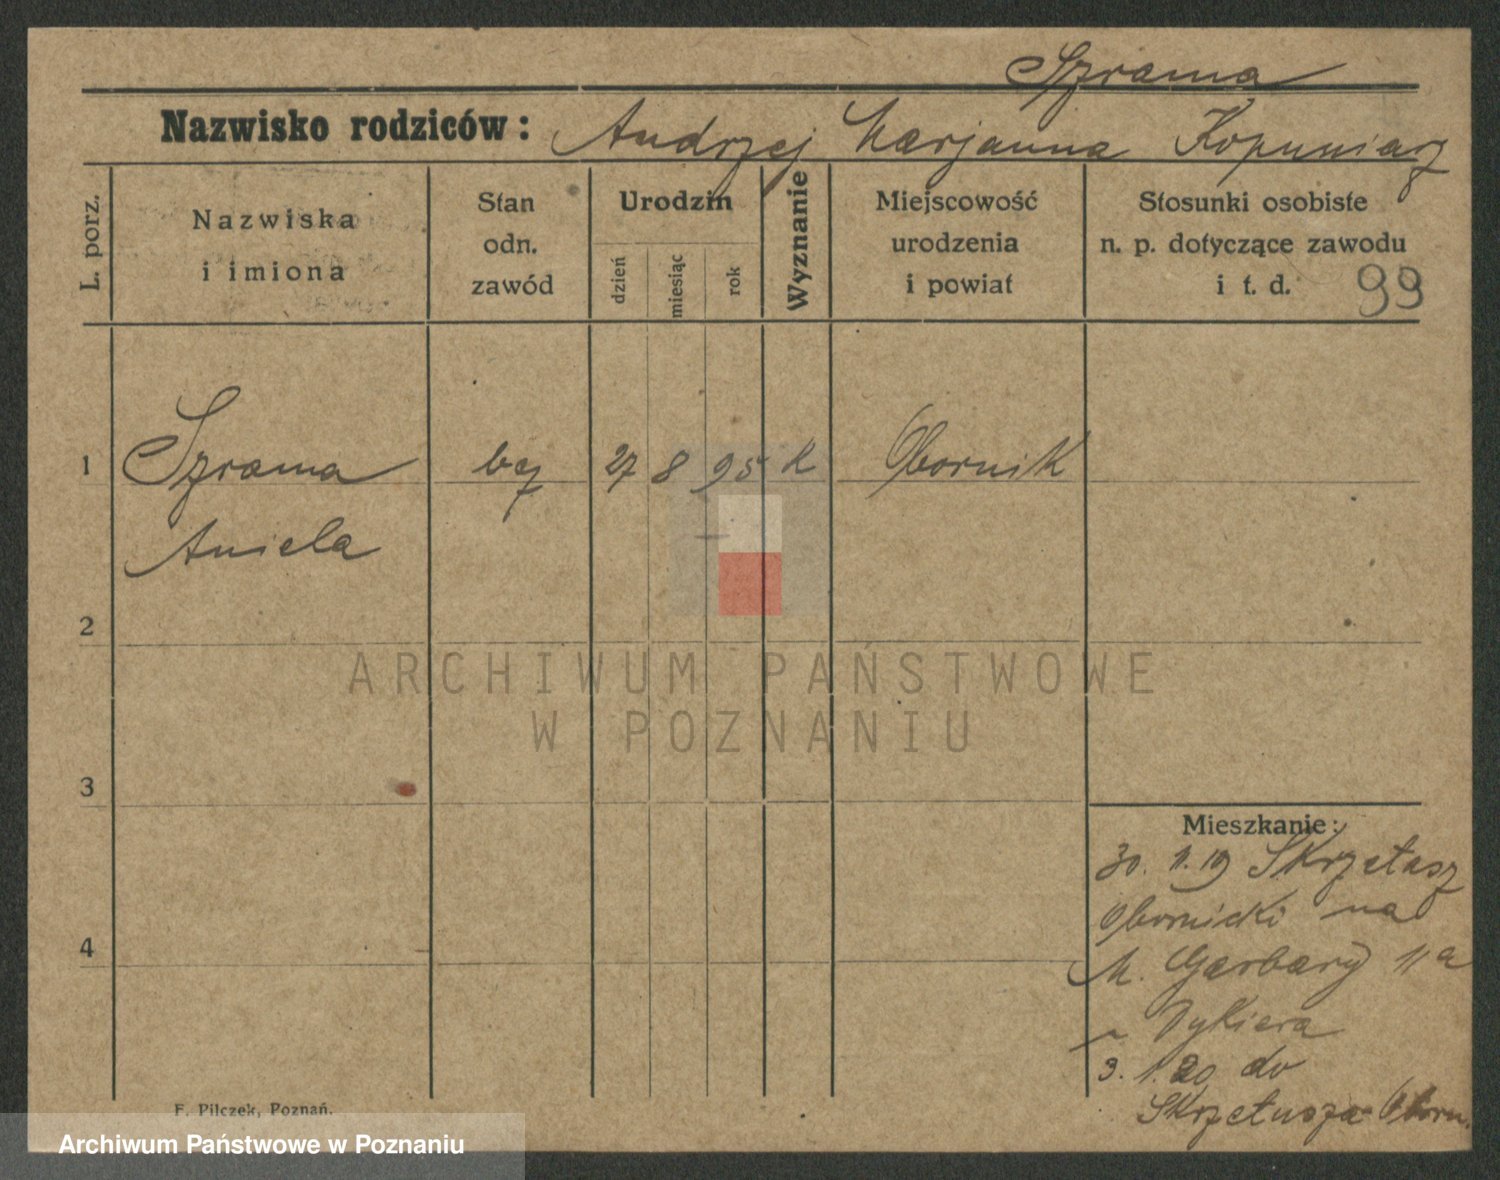 Szrama
Nazwisko rodziców: Andrzej Marjanna Kopuniarz
L. porz.
Nazwiska
i imiona
Stan
odn.
zawód
Urodzin
dzień
miesiąc
rok
Wyznanie
Miejscowość
urodzenia
i powiat
Stosunki osobiste
n. p. dotyczące zawodu
i t. d.
99
1 Szrama bez 27 8 95 k Obornik
Aniela
2
3
4
ARCHIWUM PAŃSTWOWE
W POZNANIU
Mieszkanie:
30. 11. 19 Skrzetusz
Obornicki na
M. Garbary 11a
3. 1. 20 do
Skrzetusza Oborn.
F. Pilczek, Poznań.
Archiwum Państwowe w Poznaniu